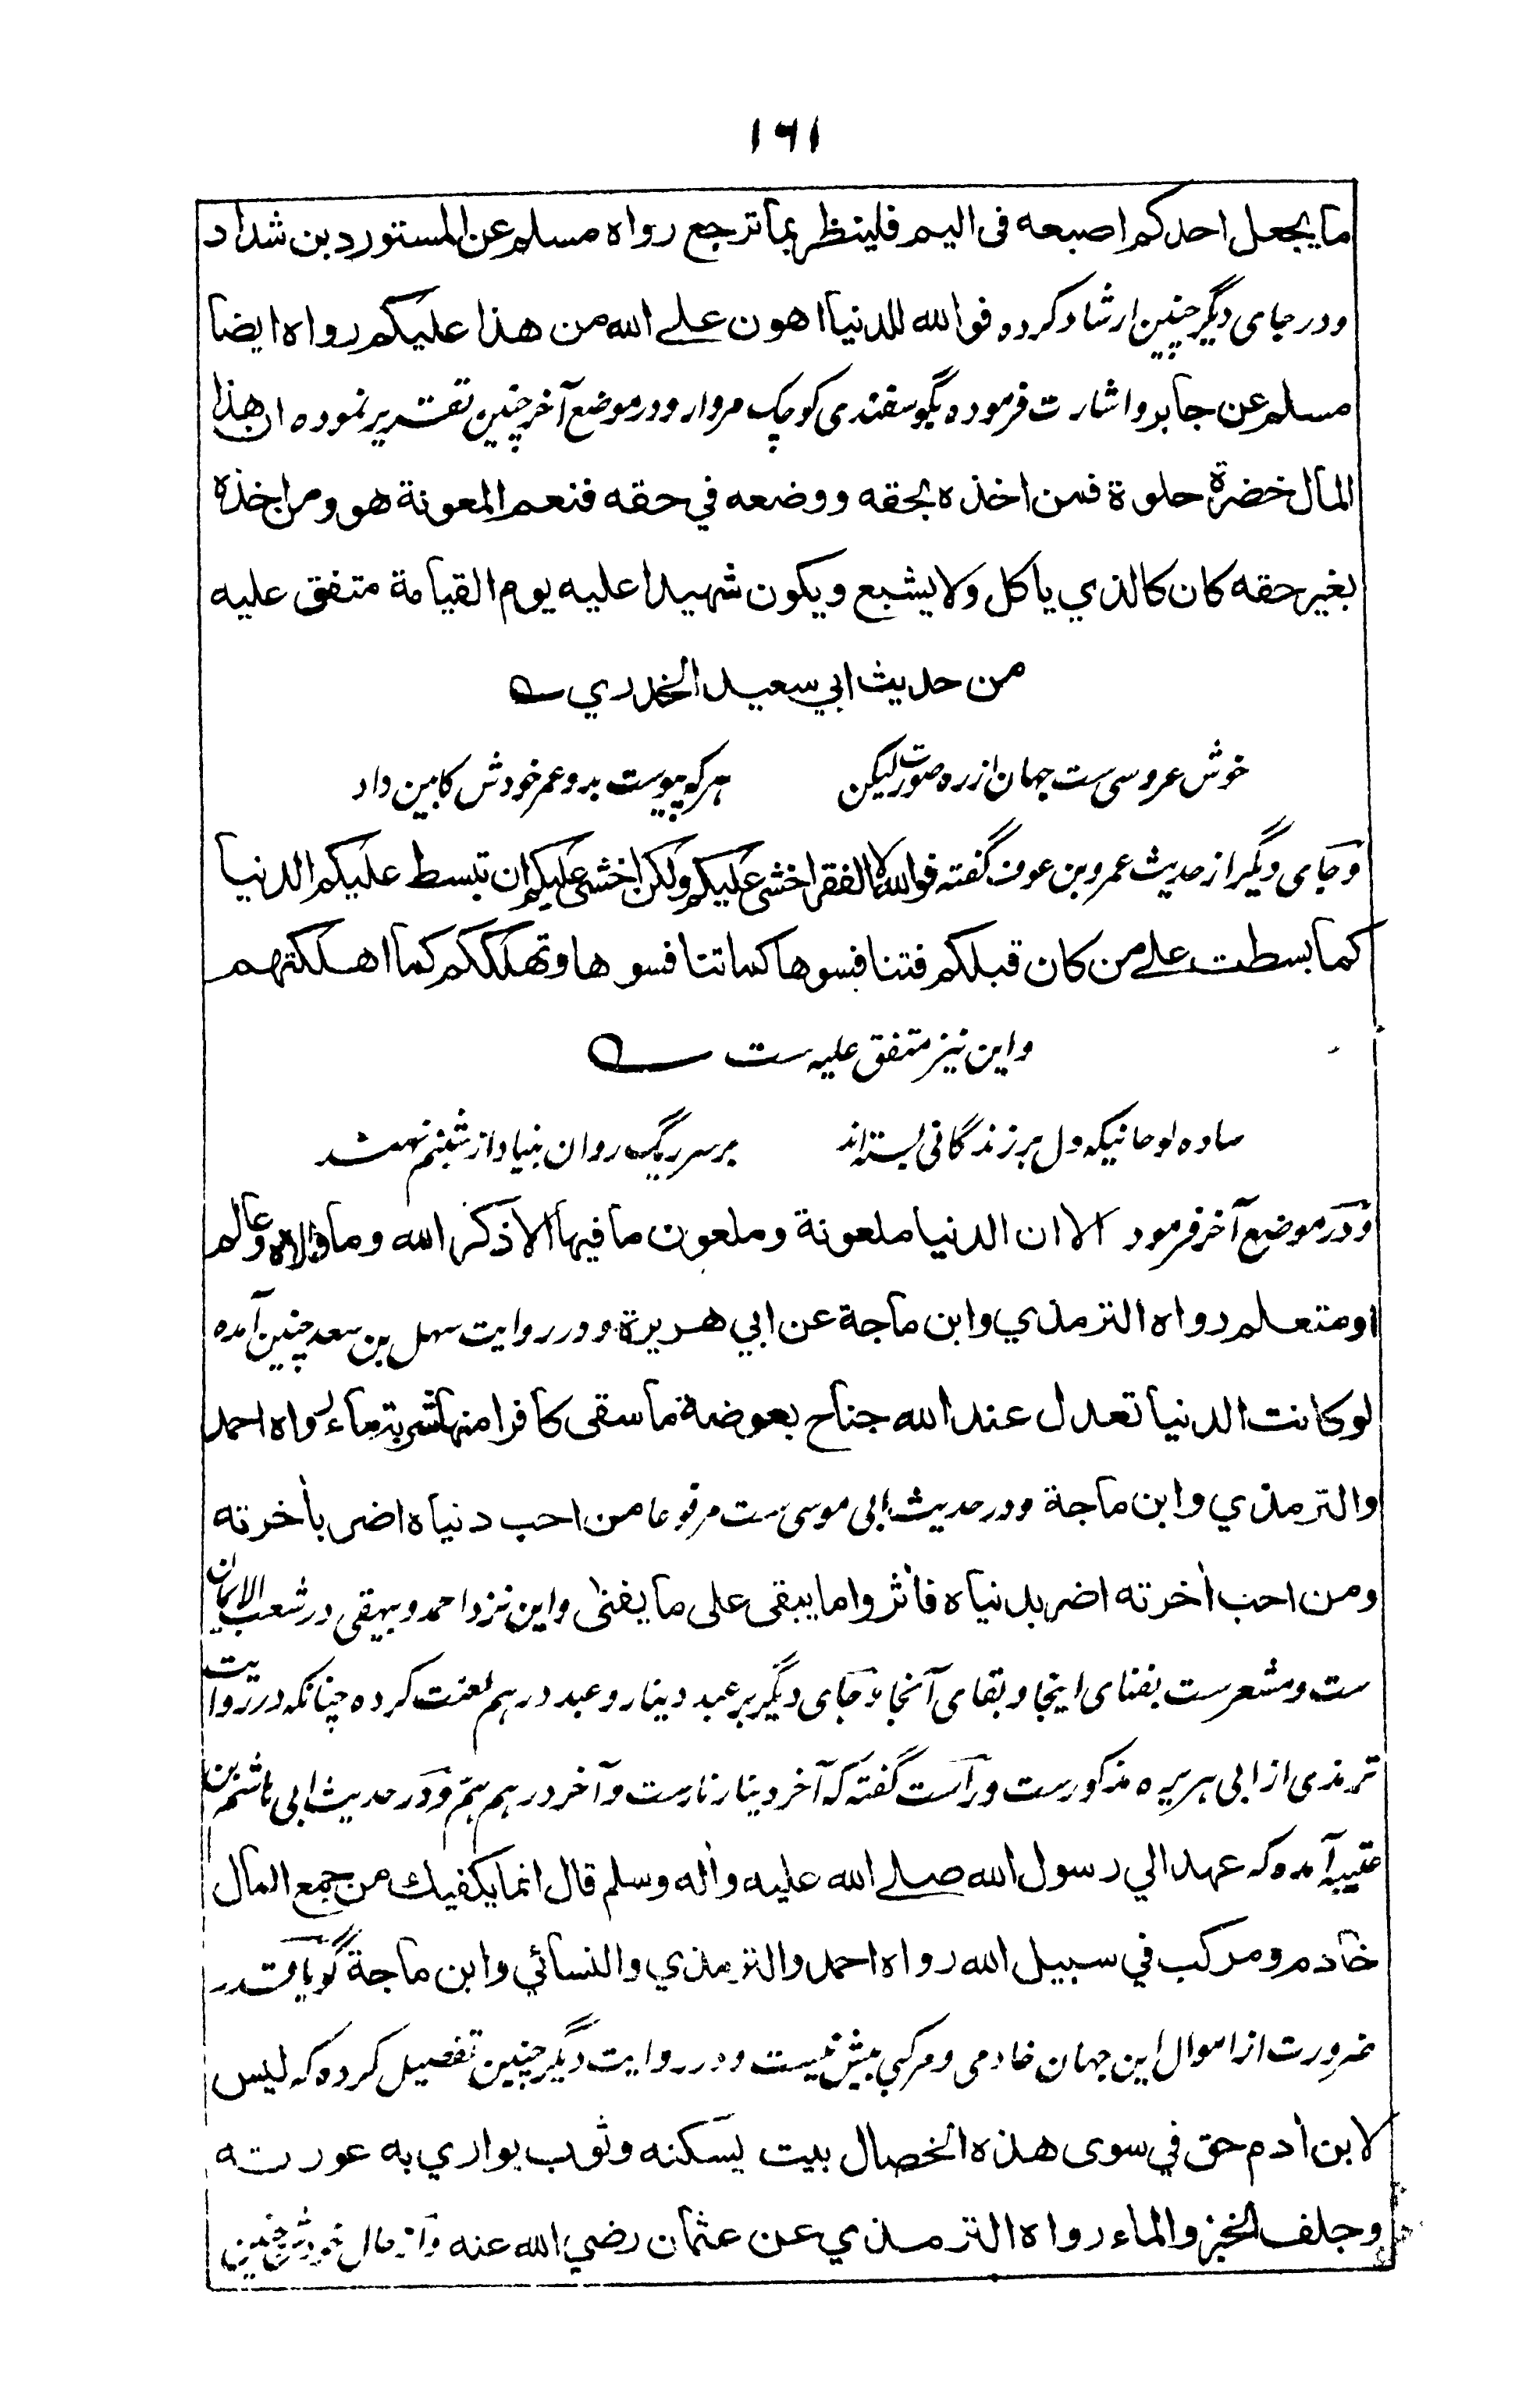 ۱۶۱
ما يجعل احدكم اصبعه فى اليم فلينظر بما ترجع رواه مسلم عن المستورد بن شداد
و در جای دیگر چنین ارشاد کرده فوالله للدنيا اهون علے الله من هذا عليكم رواه ايضا
مسلم عن جابر و اشارت فرموده بگوسفندی کوچک مردار و در موضع آخر چنین تقریر نموده ان هذا
المال خضرة حلوة فمن اخذه بحقه ووضعه في حقه فنعم المعونة هو ومن اخذه
بغير حقه كان كالذي ياكل ولا يشبع ويكون شهيدا عليه يوم القيامة متفق عليه
من حديث ابي سعيد الخدري
خوش عروسی ست جهان از ره صورت لیکن هر که پیوست بدو عمر خودش کابین داد
و جای دیگر از حدیث عمرو بن عوف گفته فوالله لا الفقر اخشى عليكم ولكن اخشى عليكم ان تبسط عليكم الدنيا
كما بسطت علے من كان قبلكم فتنافسوها كما تنافسوها وتهلككم كما اهلكتهم
و این نیز متفق علیه ست
ساده لوحانیکه دل بر زندگانی بسته اند بر سر ریگ روان بنیاد از شبنم نهند
و در موضع آخر فرمود الا ان الدنيا ملعونة وملعون ما فيها الا ذكر الله وما والاه وعالم
او متعلم رواه الترمذي وابن ماجة عن ابي هريرة و در روایت سهل بن سعد چنین آمده
لو كانت الدنيا تعدل عند الله جناح بعوضة ما سقى كافرا منها شربة ماء رواه احمد
والترمذي وابن ماجة و در حدیث ابی موسی ست مرفوعا من احب دنياه اضر بأخرته
ومن احب أخرته اضر بدنياه فأثروا ما يبقى على ما يفنى و این نزد احمد و بیهقی در شعب الایمان
ست و مشعرست بفنای اینجا و بقای آنجا و جای دیگر بر عبد دینار و عبد درهم لعنت کرده چنانکه در روایت
ترمذی از ابی هریره مذکورست و راست گفته که آخر دینار نارست و آخر درهم هم و در حدیث ابی هاشم بن
عتبه آمده که عهد الي رسول الله صلے الله عليه وأله وسلم قال انما يكفيك من جمع المال
خادم ومركب في سبيل الله رواه احمد والترمذي والنسائي وابن ماجة گویا قدر
ضرورت از اموال این جهان خادمی و مرکبی بیش نیست و در روایت دیگر چنین تفصیل کرده که ليس
لابن أدم حق في سوى هذه الخصال بيت يسكنه وثوب يواري به عورته
وجلف الخبز والماء رواه الترمذي عن عثمان رضي الله عنه و از حال خودش چنین